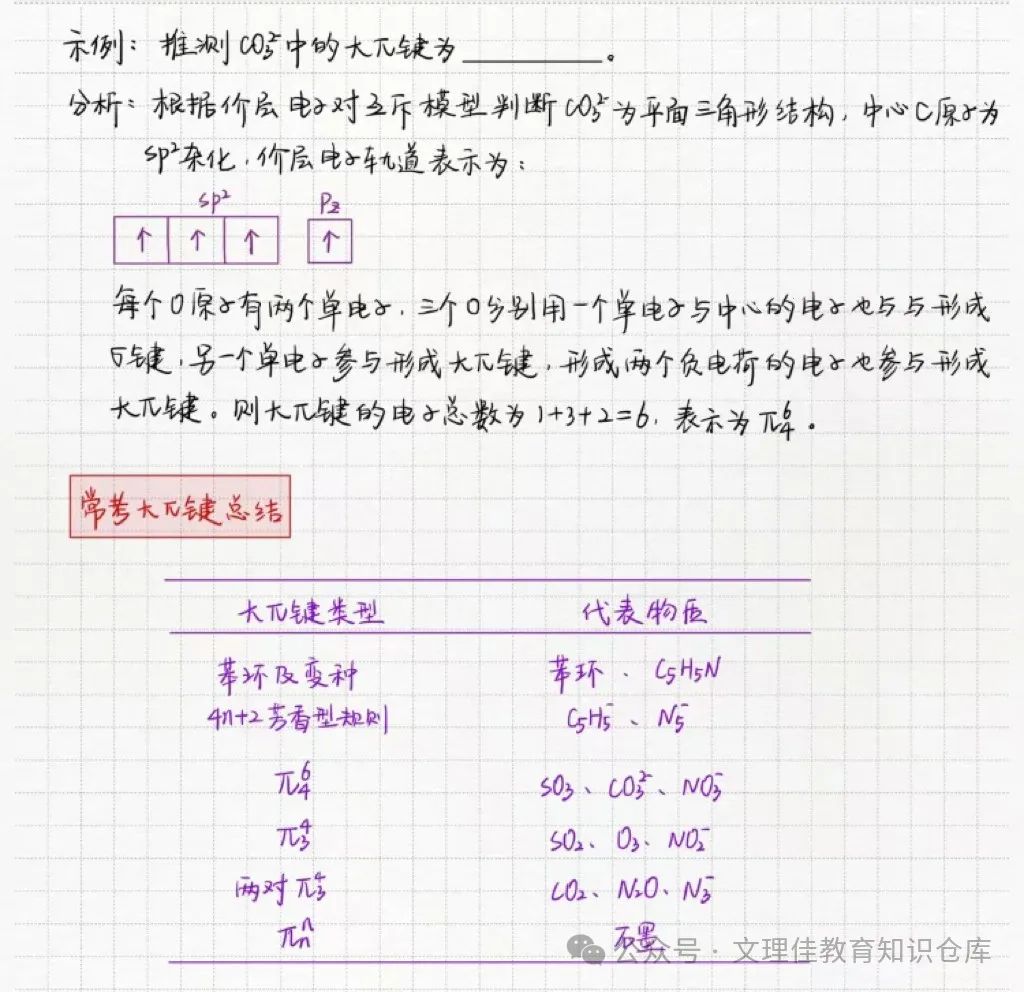 示例：推测CO₃²⁻中的大π键为________。
分析：根据价层电子对互斥模型判断CO₃²⁻为平面三角形结构，中心C原子为
sp²杂化，价层电子轨道表示为：
sp² Pz
↑ ↑ ↑ ↑
每个O原子有两个单电子，三个O分别用一个单电子与中心的电子也与与形成
σ键，另一个单电子参与形成大π键，形成两个负电荷的电子也参与形成
大π键。则大π键的电子总数为1+3+2=6，表示为π₄⁶。
常考大π键总结
大π键类型 代表物质
苯环及变种 苯环、C₅H₅N
4n+2芳香型规则 C₅H₅⁻、N₅⁻
π₄⁶ SO₃、CO₃²⁻、NO₃⁻
π₃⁴ SO₂、O₃、NO₂⁻
两对π₃⁴ CO₂、N₂O、N₃⁻
πₙⁿ 石墨
公众号·文理佳教育知识仓库